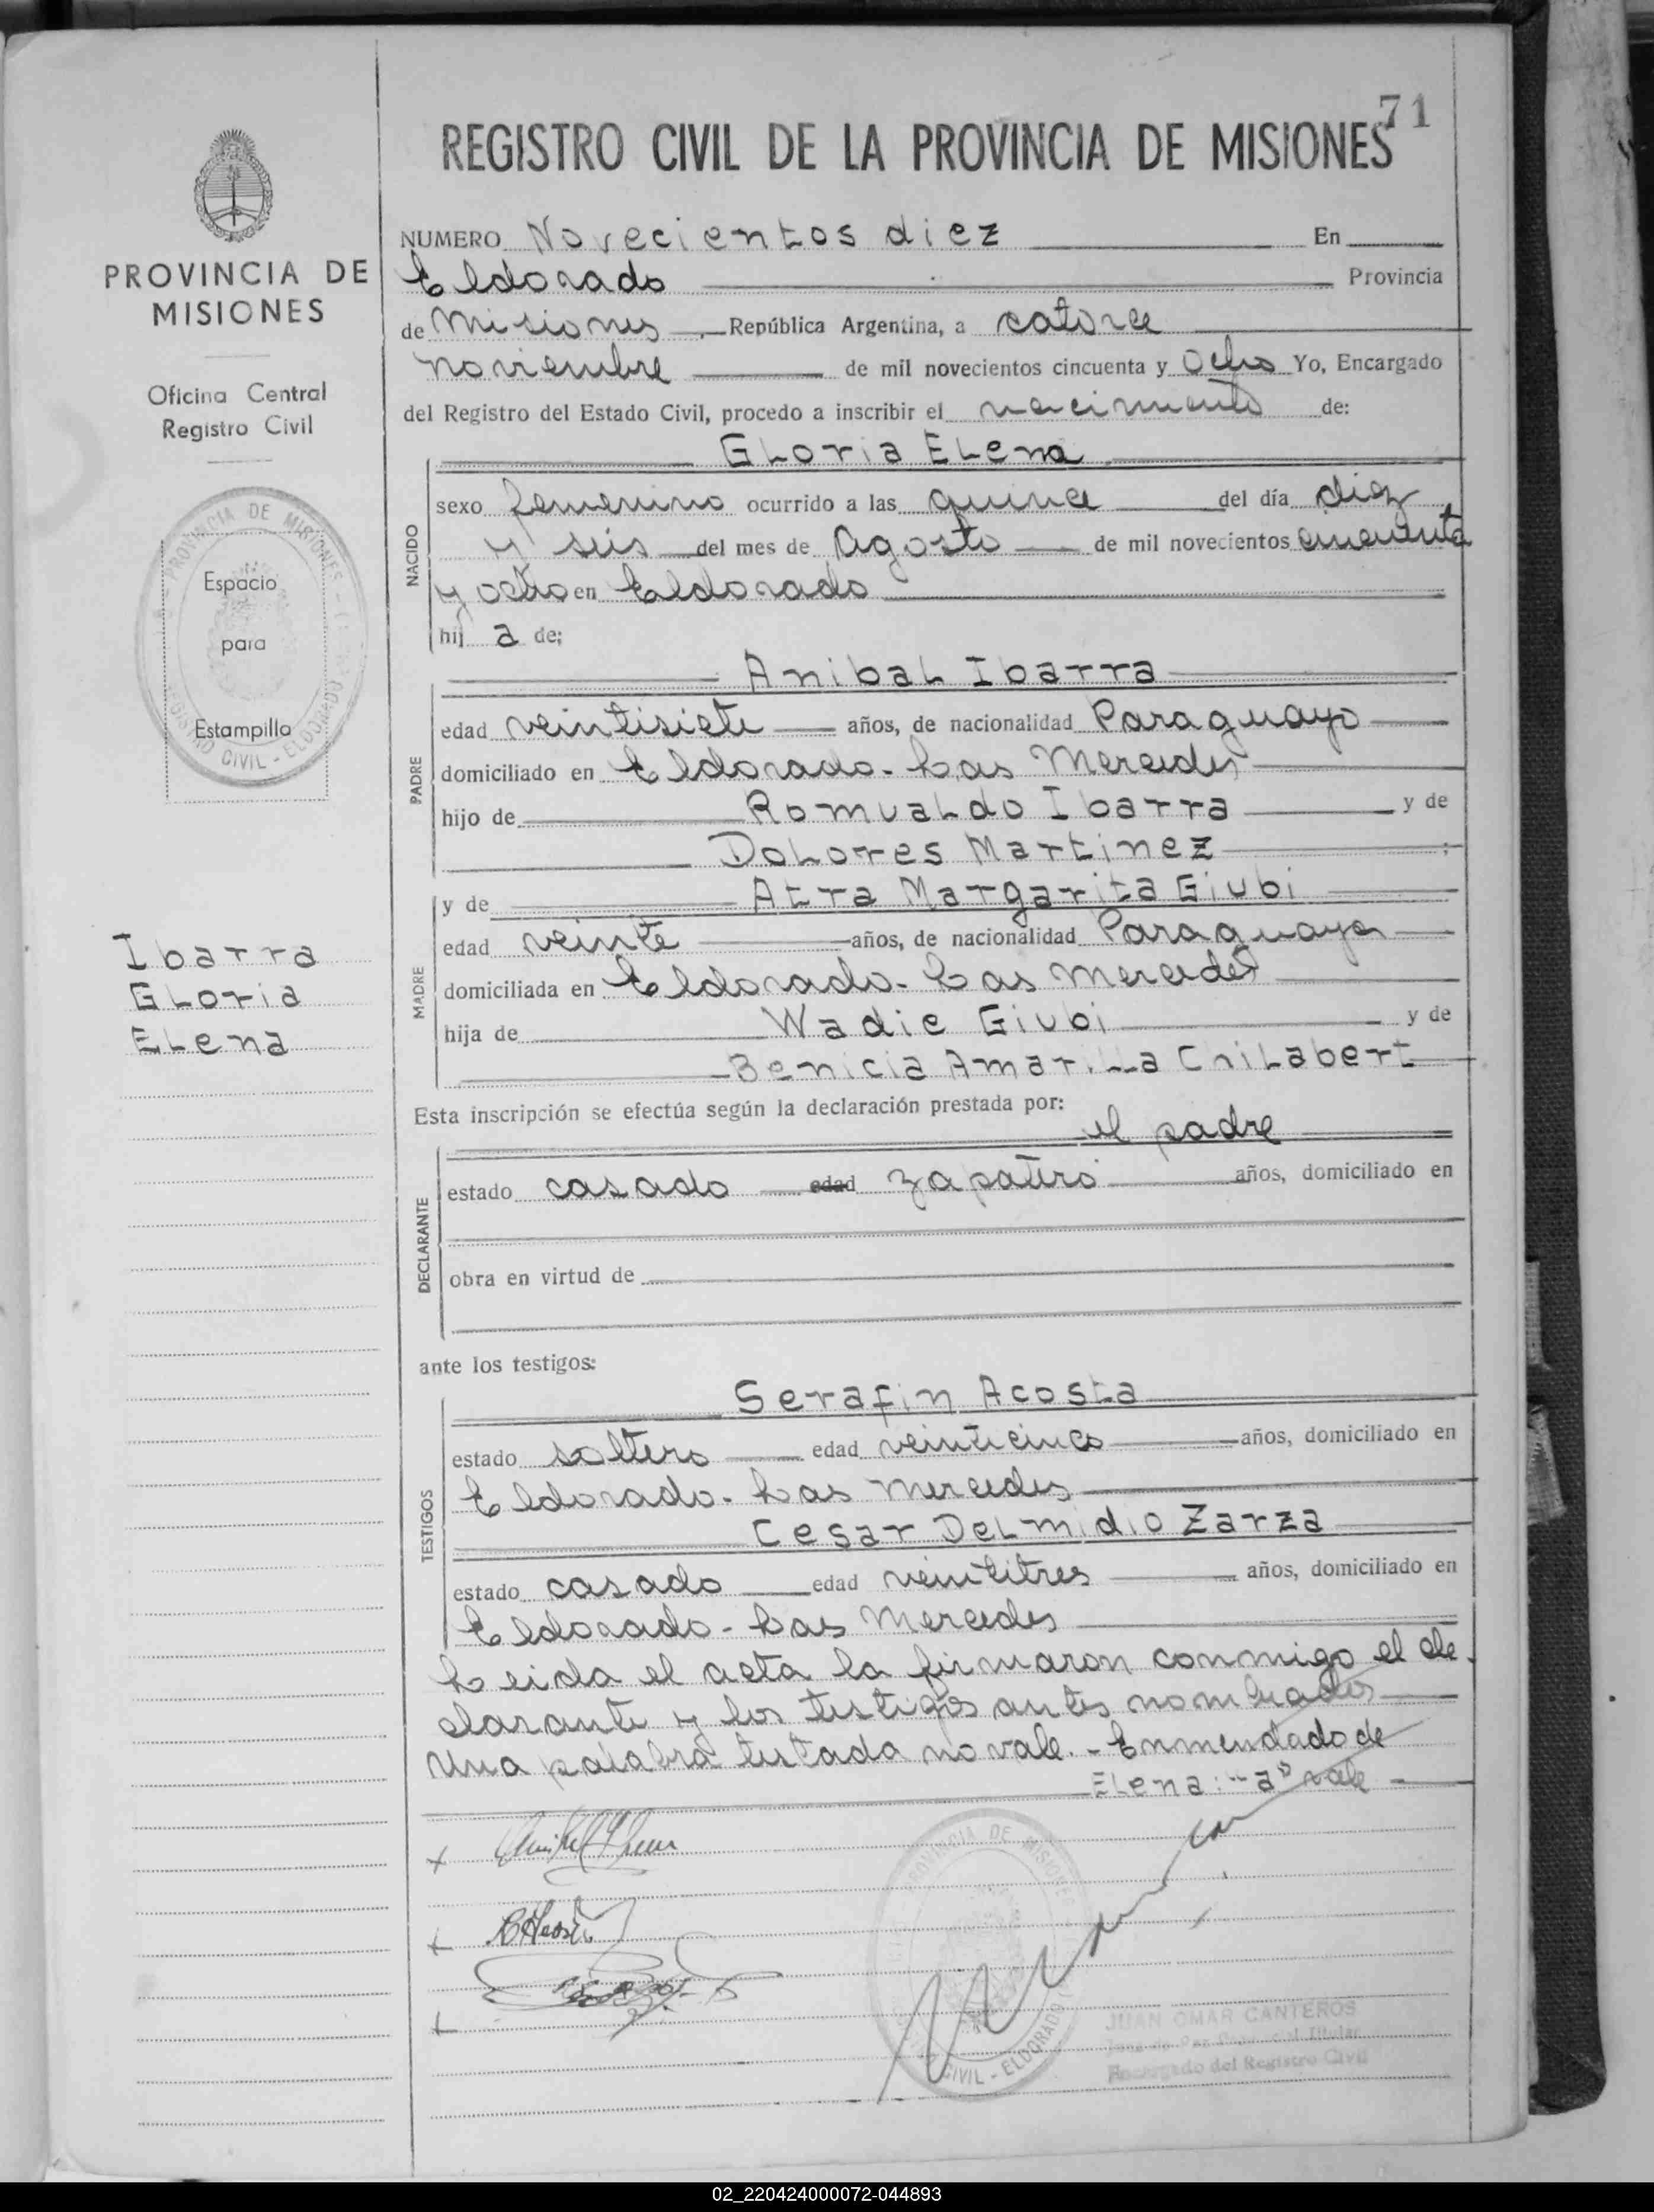 71
REGISTRO CIVIL DE LA PROVINCIA DE MISIONES
PROVINCIA DE
MISIONES
Oficina Central
Registro Civil
PROVINCIA DE MISIONES
REGISTRO CIVIL - ELDORADO
Espacio
para
Estampilla
Ibarra
Gloria
Elena
NUMERO Novecientos diez En
Eldorado Provincia
de Misiones, República Argentina, a catorce
noviembre de mil novecientos cincuenta y Ocho Yo, Encargado
del Registro del Estado Civil, procedo a inscribir el nacimiento de:
Gloria Elena
NACIDO
sexo femenino ocurrido a las quince del día diez
y seis del mes de Agosto de mil novecientos cincuenta
y ocho en Eldorado
hij a de;
Anibal Ibarra
PADRE
edad veintisiete años, de nacionalidad Paraguayo
domiciliado en Eldorado - Las Mercedes
hijo de Romualdo Ibarra y de
Dolores Martinez ;
y de Atra Margarita Giubi
MADRE
edad veinte años, de nacionalidad Paraguaya
domiciliada en Eldorado - Las Mercedes
hija de Wadie Giubi y de
Benicia Amarilla Chilabert
Esta inscripción se efectúa según la declaración prestada por:
el padre
DECLARANTE
estado casado edad zapatero años, domiciliado en
obra en virtud de
ante los testigos:
Serafin Acosta
TESTIGOS
estado soltero edad veinticinco años, domiciliado en
Eldorado - Las Mercedes
Cesar Delmidio Zarza
estado casado edad veintitres años, domiciliado en
Eldorado - Las Mercedes
Leida el acta la firmaron conmigo el de
clarante y los testigos antes nombrados
Una palabra testada no vale. - Enmendado de
Elena: "a" vale -
PROVINCIA DE MISIONES
CIVIL - ELDORADO
JUAN OMAR CANTEROS
Encargado del Registro Civil
02_220424000072-044893